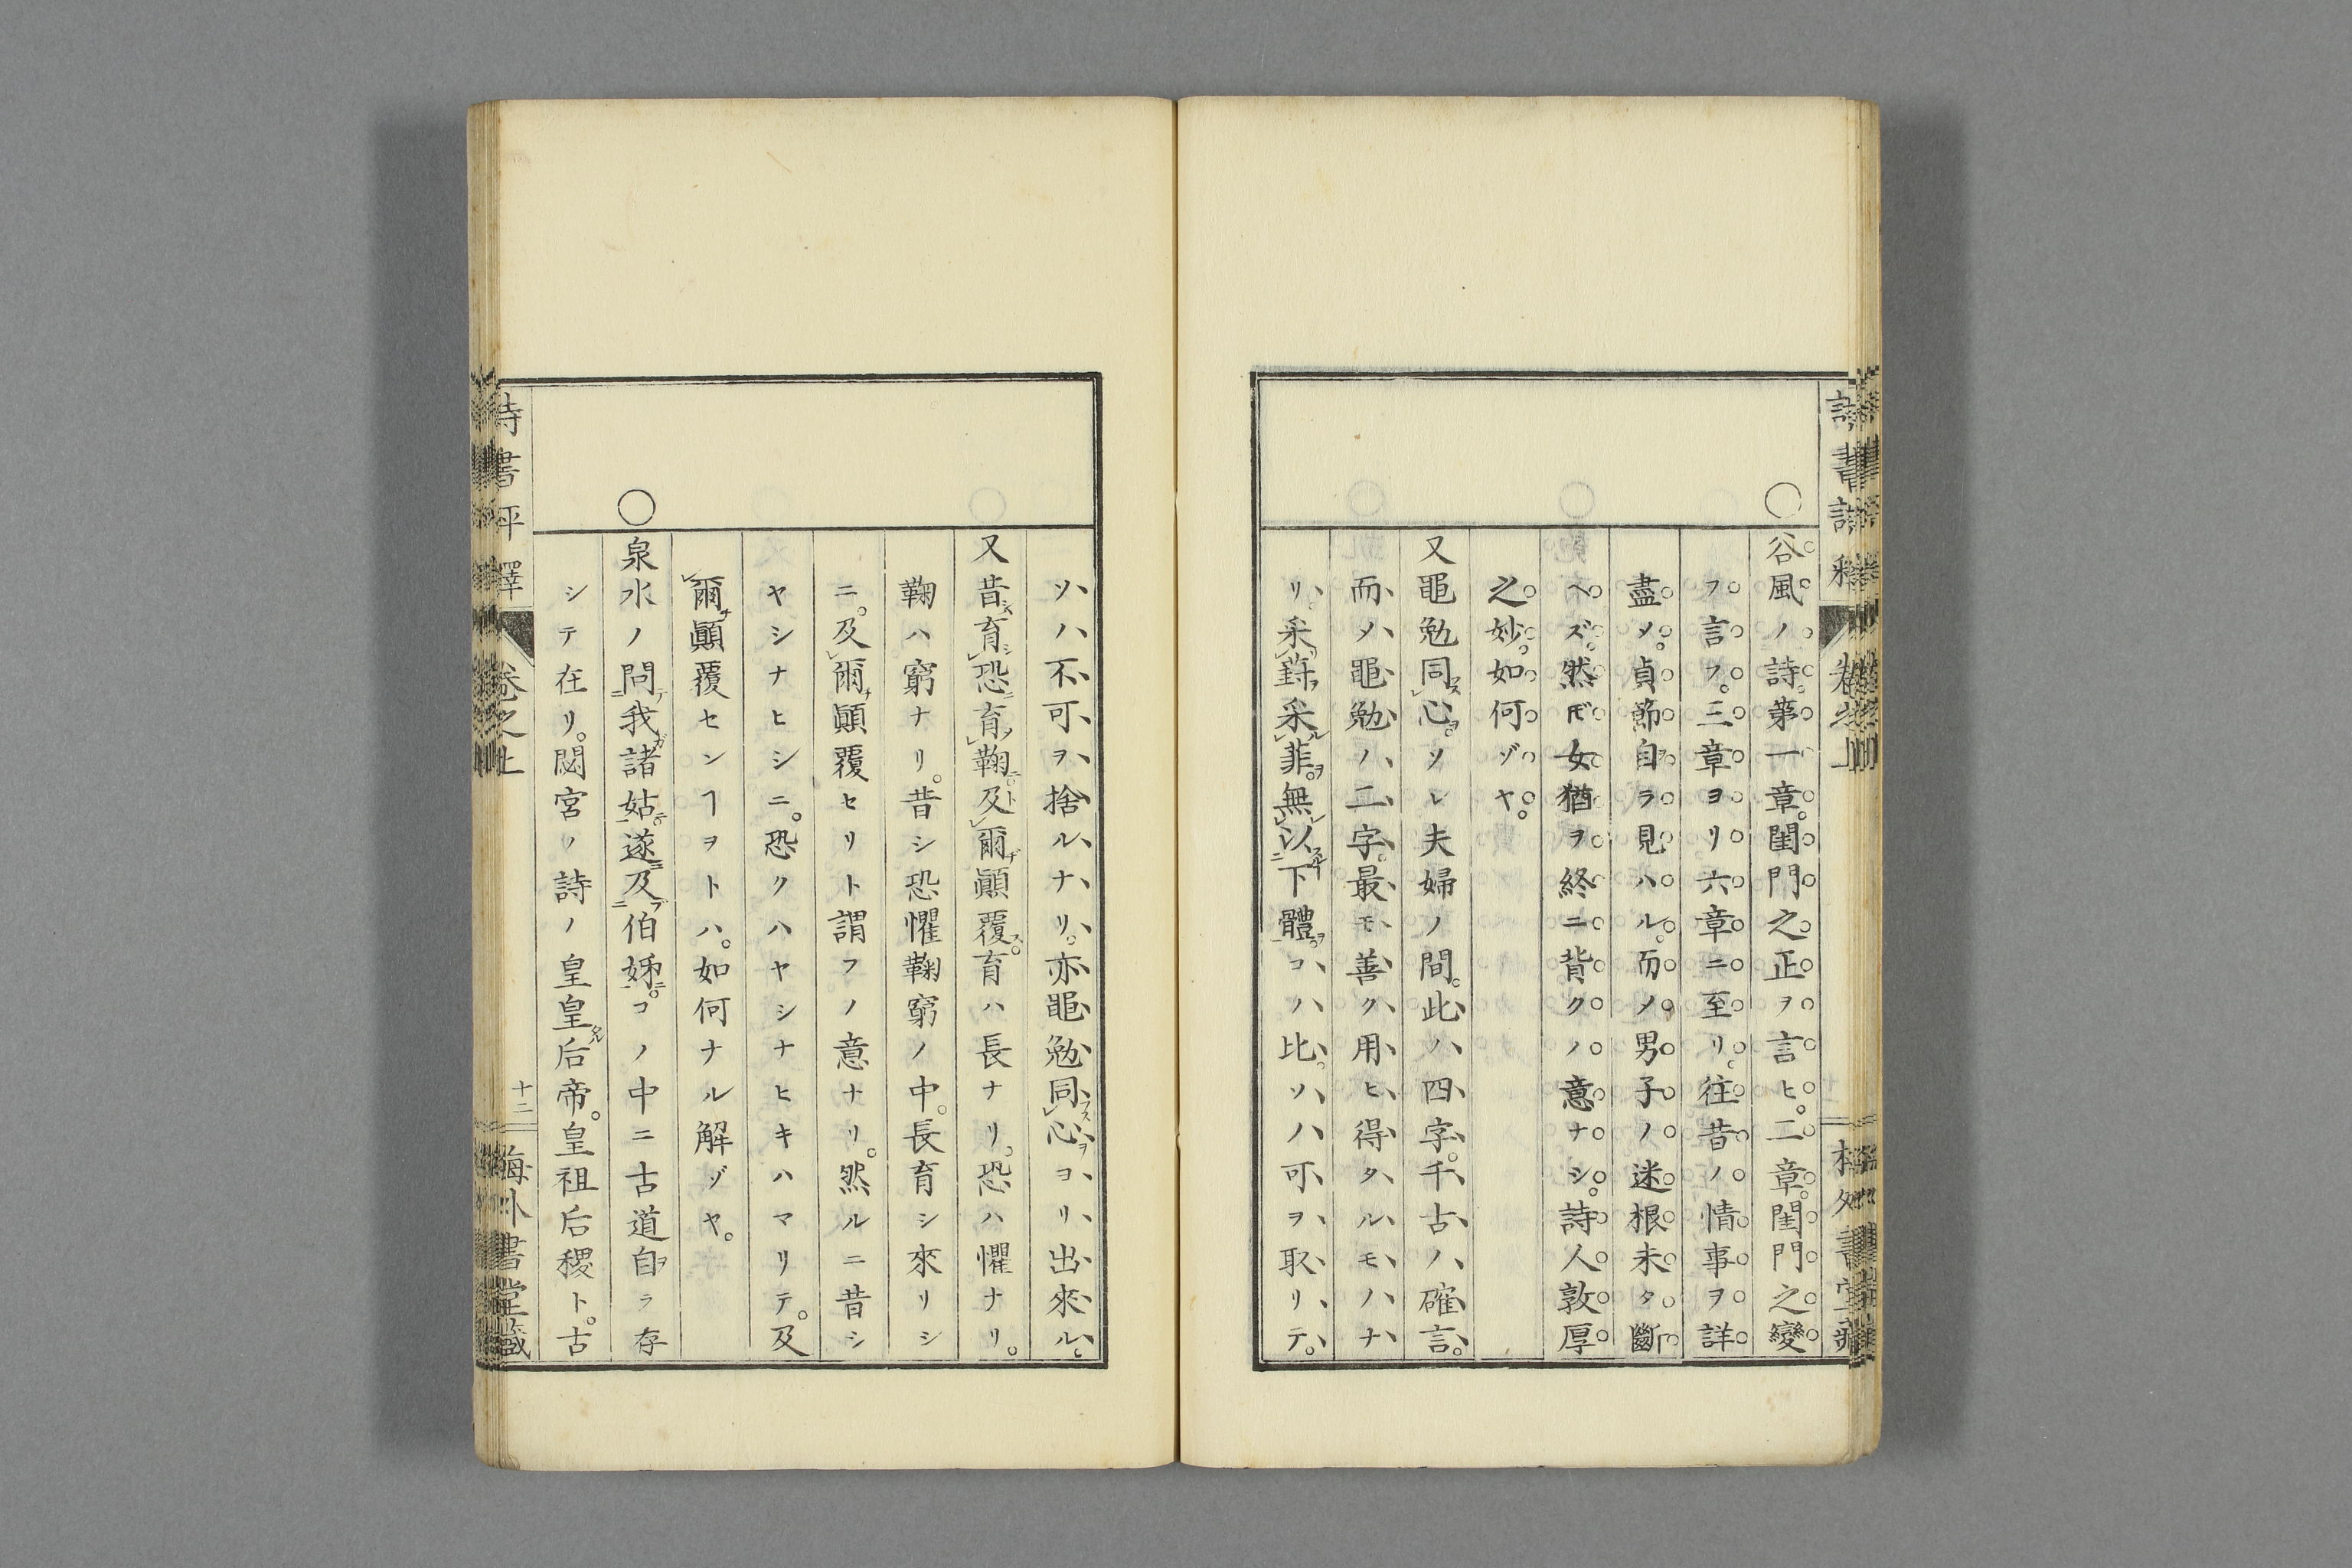 ○
谷風ノ詩第一章。閨門之正ヲ言ヒ。二章。閨門之變
フ言フ。三章ヨリ六章ニ至リ。往昔ノ情事ヲ詳
盡メ。貞節自ラ見ハル。而メ男子ノ迷根未タ斷
ヘズ。然𪜈女猶ヲ終ニ背クノ意ナシ。詩人敦厚
之妙。如何ゾヤ。
又黽勉同心。ソレ夫婦ノ間。此ハ四字。千古ノ確言。
而メ黽勉ノ二字。最モ善ク用ヒ得タルモノナ
リ。采葑采菲。無以下體。コハ比。ソハ可ヲ取リテ。
ソハ不可ヲ捨ルナリ。亦黽勉同心ヨリ出來ル。
又昔育恐育鞠。及爾顚覆。育ハ長ナリ。恐ハ懼ナリ。
鞠ハ窮ナリ。昔シ恐懼鞠窮ノ中。長育シ來リシ
ニ。及爾顚覆セリト謂フノ意ナリ。然ルニ昔シ
ヤシナヒシニ。恐クハヤシナヒキハマリテ。及
爾顚覆センヿヲトハ。如何ナル解ゾヤ。
○
泉水ノ問我諸姑。遂及伯姊。コノ中ニ古道自ラ存
シテ在リ。閟宮ノ詩ノ皇皇后帝。皇祖后稷ト。古
詩書評釋
卷之上
十二
海外書堂藏